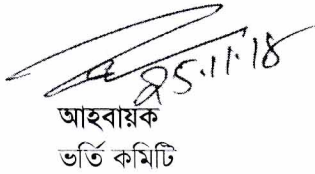 25.11.18
আহবায়ক
ভর্তি কমিটি